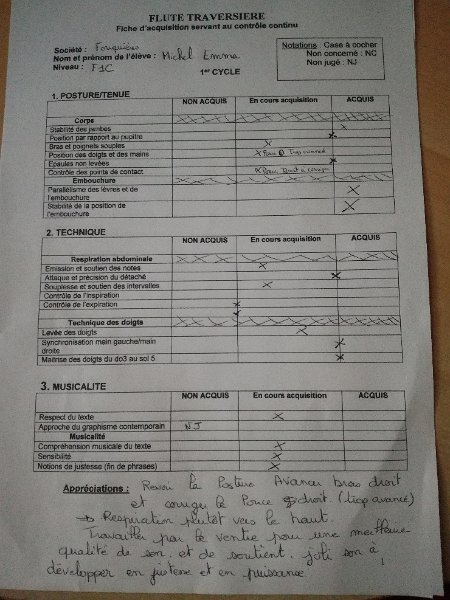 FLUTE TRAVERSIERE
Fiche d'acquisition servant au contrôle continu
Société : Fouquières
Nom et prénom de l'élève : Michel Emma
Niveau : F1C
1er CYCLE
Notations : Case à cocher
Non concerné : NC
Non jugé : NJ
1. POSTURE/TENUE
NON ACQUIS En cours acquisition ACQUIS
Corps
Stabilité des jambes X
Position par rapport au pupitre X
Bras et poignets souples X
Position des doigts et des mains X Pouce D trop avancé
Epaules non levées X
Contrôle des points de contact X Pouce droit à corriger
Embouchure
Parallélisme des lèvres et de X
l'embouchure
Stabilité de la position de X
l'embouchure
2. TECHNIQUE
NON ACQUIS En cours acquisition ACQUIS
Respiration abdominale
Emission et soutien des notes X
Attaque et précision du détaché X
Souplesse et soutien des intervalles X
Contrôle de l'inspiration
Contrôle de l'expiration X
Technique des doigts
Levée des doigts X
Synchronisation main gauche/main X
droite
Maitrise des doigts du do3 au sol 5 X
3. MUSICALITE
NON ACQUIS En cours acquisition ACQUIS
Respect du texte X
Approche du graphisme contemporain NJ
Musicalité
Compréhension musicale du texte X
Sensibilité X
Notions de justesse (fin de phrases) X
Appréciations : Revoir la Posture Avancer bras droit
et corriger le Pouce droit. (trop avancé)
→ Respiration plutôt vers le haut.
Travailler par le ventre pour une meilleure
qualité de son et de soutient. joli son à
développer en justesse et en puissance
1